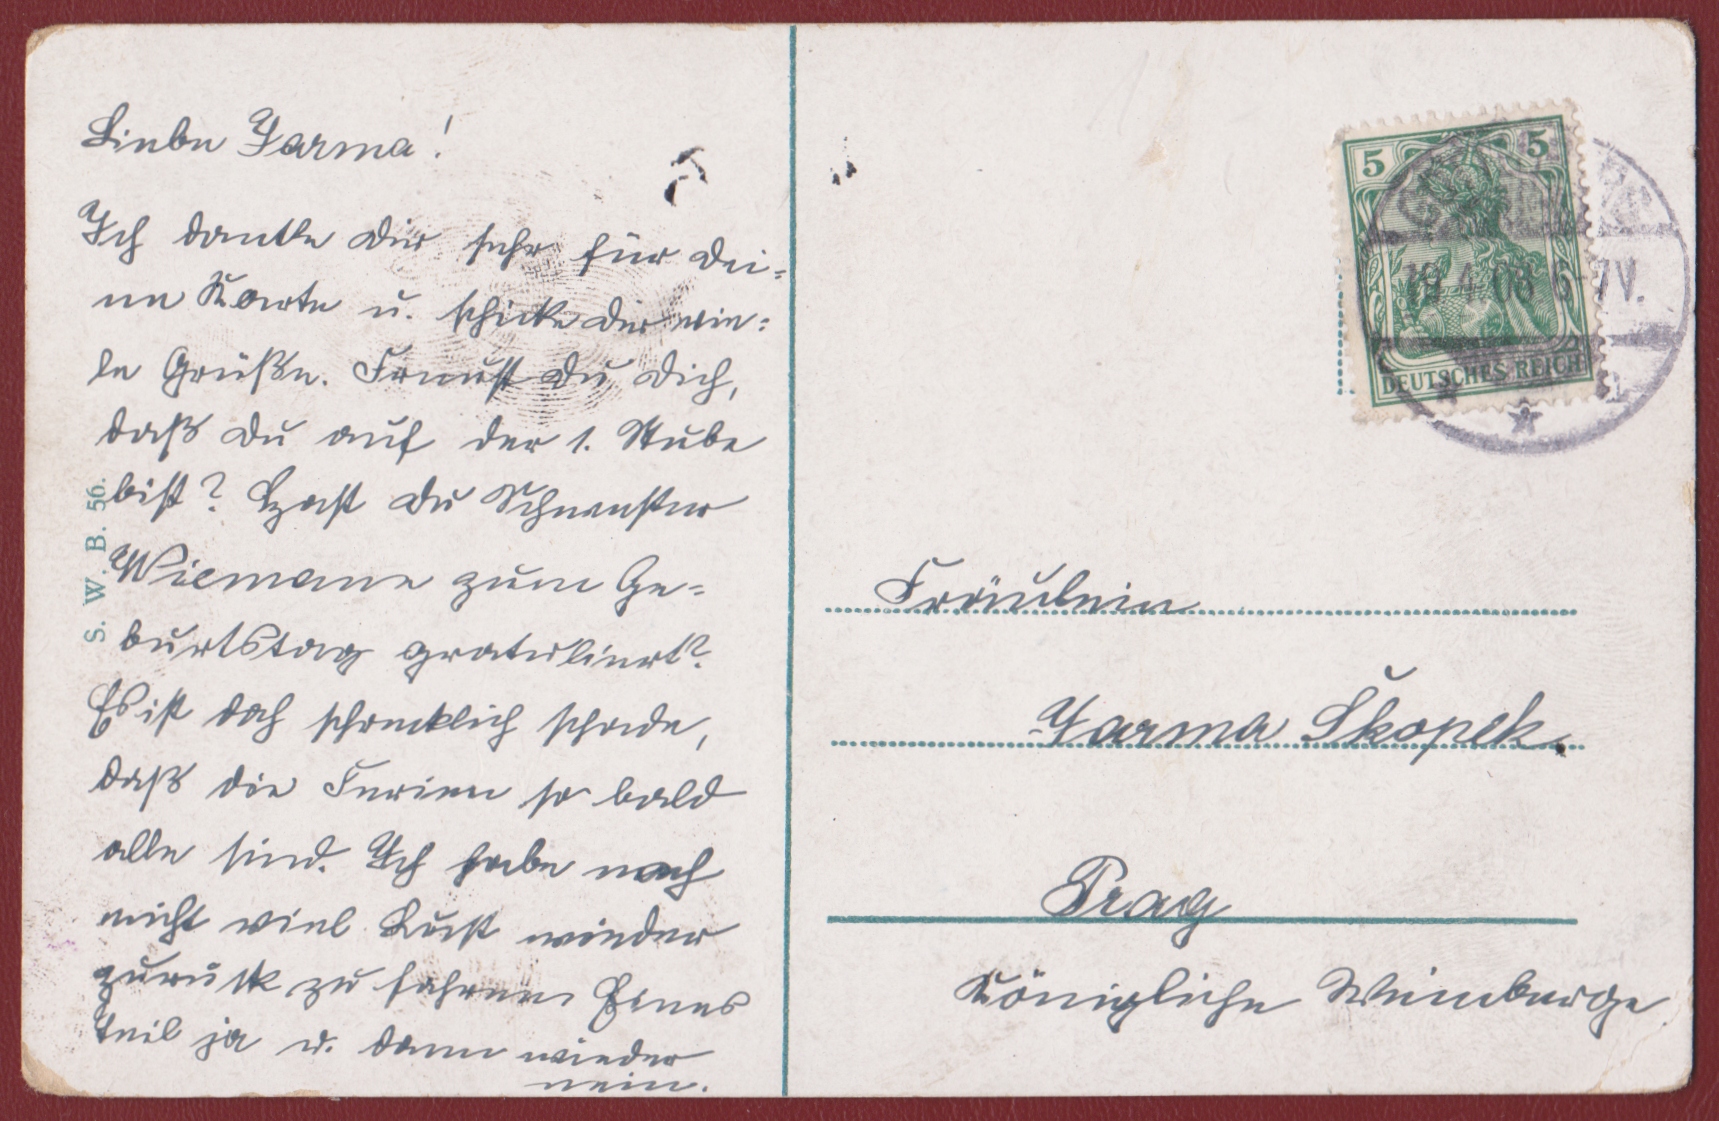 Liebe Jarma!
Ich danke Dir sehr für Dei-
ne Karte u. schicke Dir vie-
le Grüße. Freust Du Dich,
daß Du auf der 1. Stube
bist? Hast Du Schwester
Wiemann zum Ge-
burtstag gratuliert?
Es ist doch schrecklich schade,
daß die Ferien so bald
alle sind. Ich habe noch
nicht viel Lust wieder
zurück zu fahren. Eines
teil ja u. dann wieder
nein.
S. W. B. 56.
5 5
19.4.08 6-7V.
DEUTSCHES REICH
Fräulein
Jarma Škopek.
Prag
Königliche Weinberge